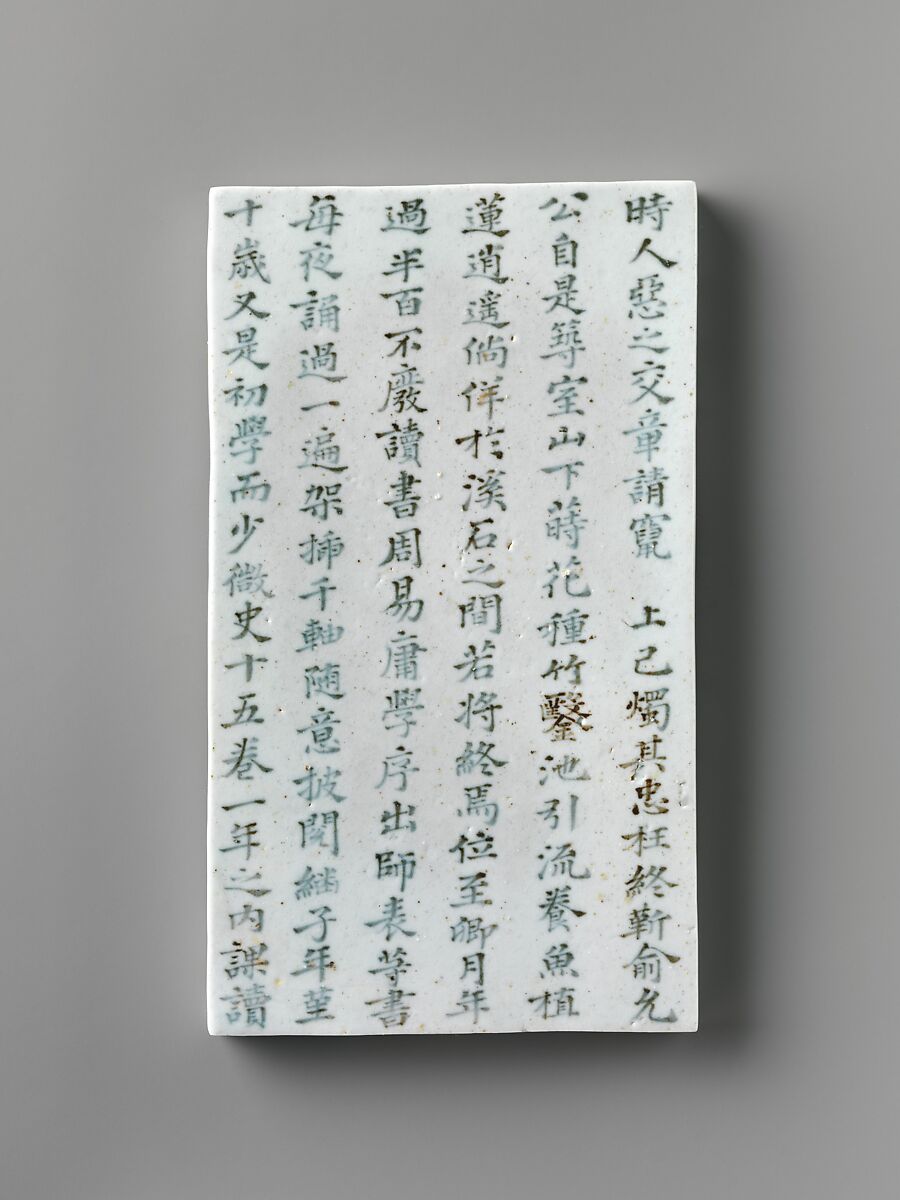 時人惡之交章請竄 上已燭其忠枉終靳俞允
公自是築室山下蒔花種竹鑿池引流養魚植
蓮逍遙倘佯於溪石之間若將終焉位至卿月年
過半百不廢讀書周易庸學序出師表等書
每夜誦過一遍架揷千軸随意披閱繼子年堇
十歲又是初學而少微史十五卷一年之內課讀